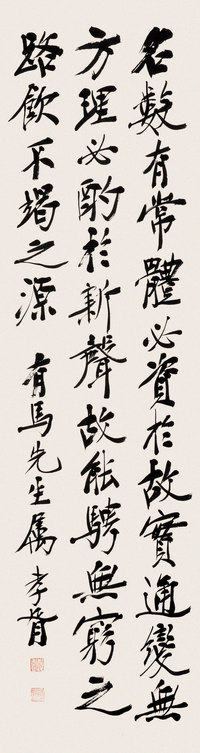 名數有常體必資於故實通變無
方理必酌於新聲故能騁無窮之
路飲不竭之源 有馬先生属 孝胥